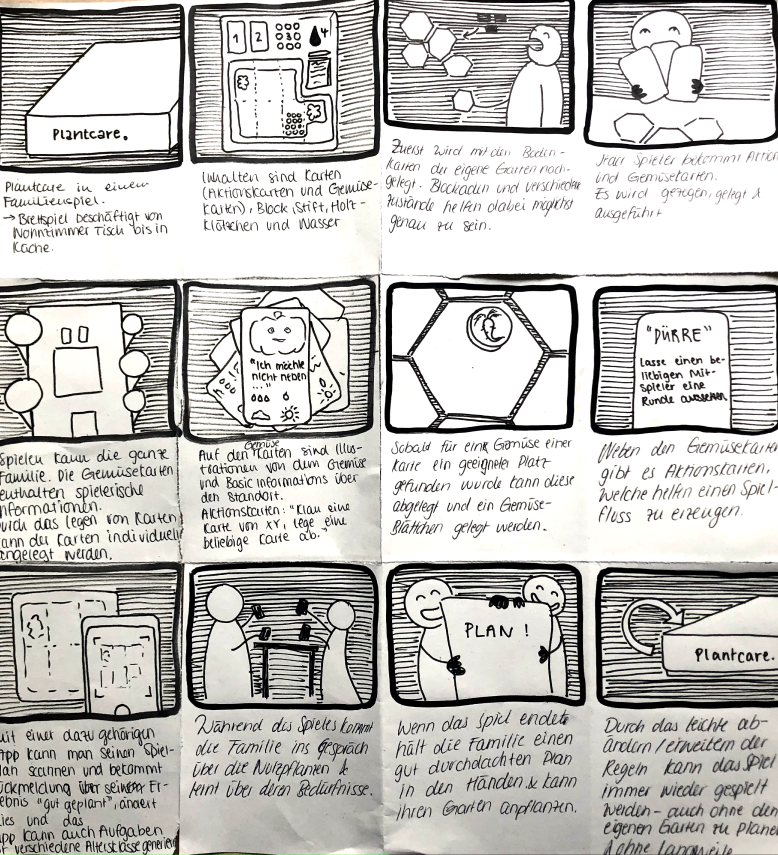 Plantcare.
1 2 3 4
Plantcare in einem
Familienspiel.
→ Brettspiel beschäftigt von
Wohnzimmer Tisch bis in
Küche.
Inhalten sind Karten
(Aktionskarten und Gemüse-
karten), Block, Stift, Holz-
klötzchen und Wasser
Zuerst wird mit den Boden-
karten der eigene Garten nach-
gelegt. Blockaden und verschiedene
Zustände helfen dabei möglichst
genau zu sein.
Jeder Spieler bekommt Aktion
und Gemüsekarten.
Es wird gezogen, gelegt &
ausgeführt
Spielen kann die ganze
Familie. Die Gemüsekarten
enthalten spielerische
Informationen.
durch das legen von Karten
kann der Karten individuell
angelegt werden.
"Ich möchte
nicht neben
..."
Gemüse
Auf den Karten sind Illus-
trationen von dem Gemüse
und Basic Informations über
den Standort.
Aktionskarten: "Klau eine
Karte von XY, lege eine
beliebige Karte ab."
Sobald für eine Gemüse einer
karte ein geeigneter Platz
gefunden wurde kann diese
abgelegt und ein Gemüse-
Blättchen gelegt werden.
"DÜRRE"
Lasse einen be-
liebigen Mit-
spieler eine
Runde aussetzen
Neben den Gemüsekarten
gibt es Aktionskarten,
welche helfen einen Spiel-
fluss zu erzeugen.
mit einer dazu gehörigen
App kann man seinen Spiel-
plan scannen und bekommt
ückmeldung über seinem Er-
ebnis "gut geplant", ändert
ies und das
App kann auch Aufgaben
f verschiedene Altersklasse generien
Während des Spieles kommt
die Familie ins Gespräch
über die Nutzpflanzen &
lernt über deren Bedürfnisse.
PLAN !
Wenn das Spiel endete
hält die Familie einen
gut durchdachten Plan
in den Händen & kann
ihren Garten anpflanzen.
Plantcare.
Durch das leichte ab-
ändern/erweitern der
Regeln kann das Spiel
immer wieder gespielt
werden - auch ohne den
eigenen Garten zu planen
& ohne langweile